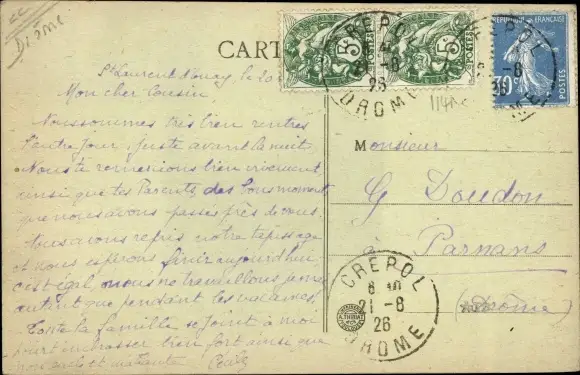 Drôme
CARTE
St Laurent d'Onay, le 20
Mon cher Cousin,
Nous sommes très bien rentrés
l'autre jour, juste avant la nuit
Nous te remercions bien vivement
ainsi que tes Parents, des bons moments
que nous avons passés près de vous.
Nous avons repris notre tapissage
et nous espérons finir aujourd'hui
c'est égal, nous ne travaillons jamais
autant que pendant les vacances.
Toute la famille se joint à moi
pour t'embrasser bien fort ainsi que
Cécile
5c
5c
POSTES
REPUBLIQUE FRANÇAISE
30
POSTES
CREPOL
21-8
26
DROME
114Ac
Monsieur
G Doudon
à Parnans
(Drôme)
CREPOL
8 40
21-8
26
DROME
A. THIRIAT